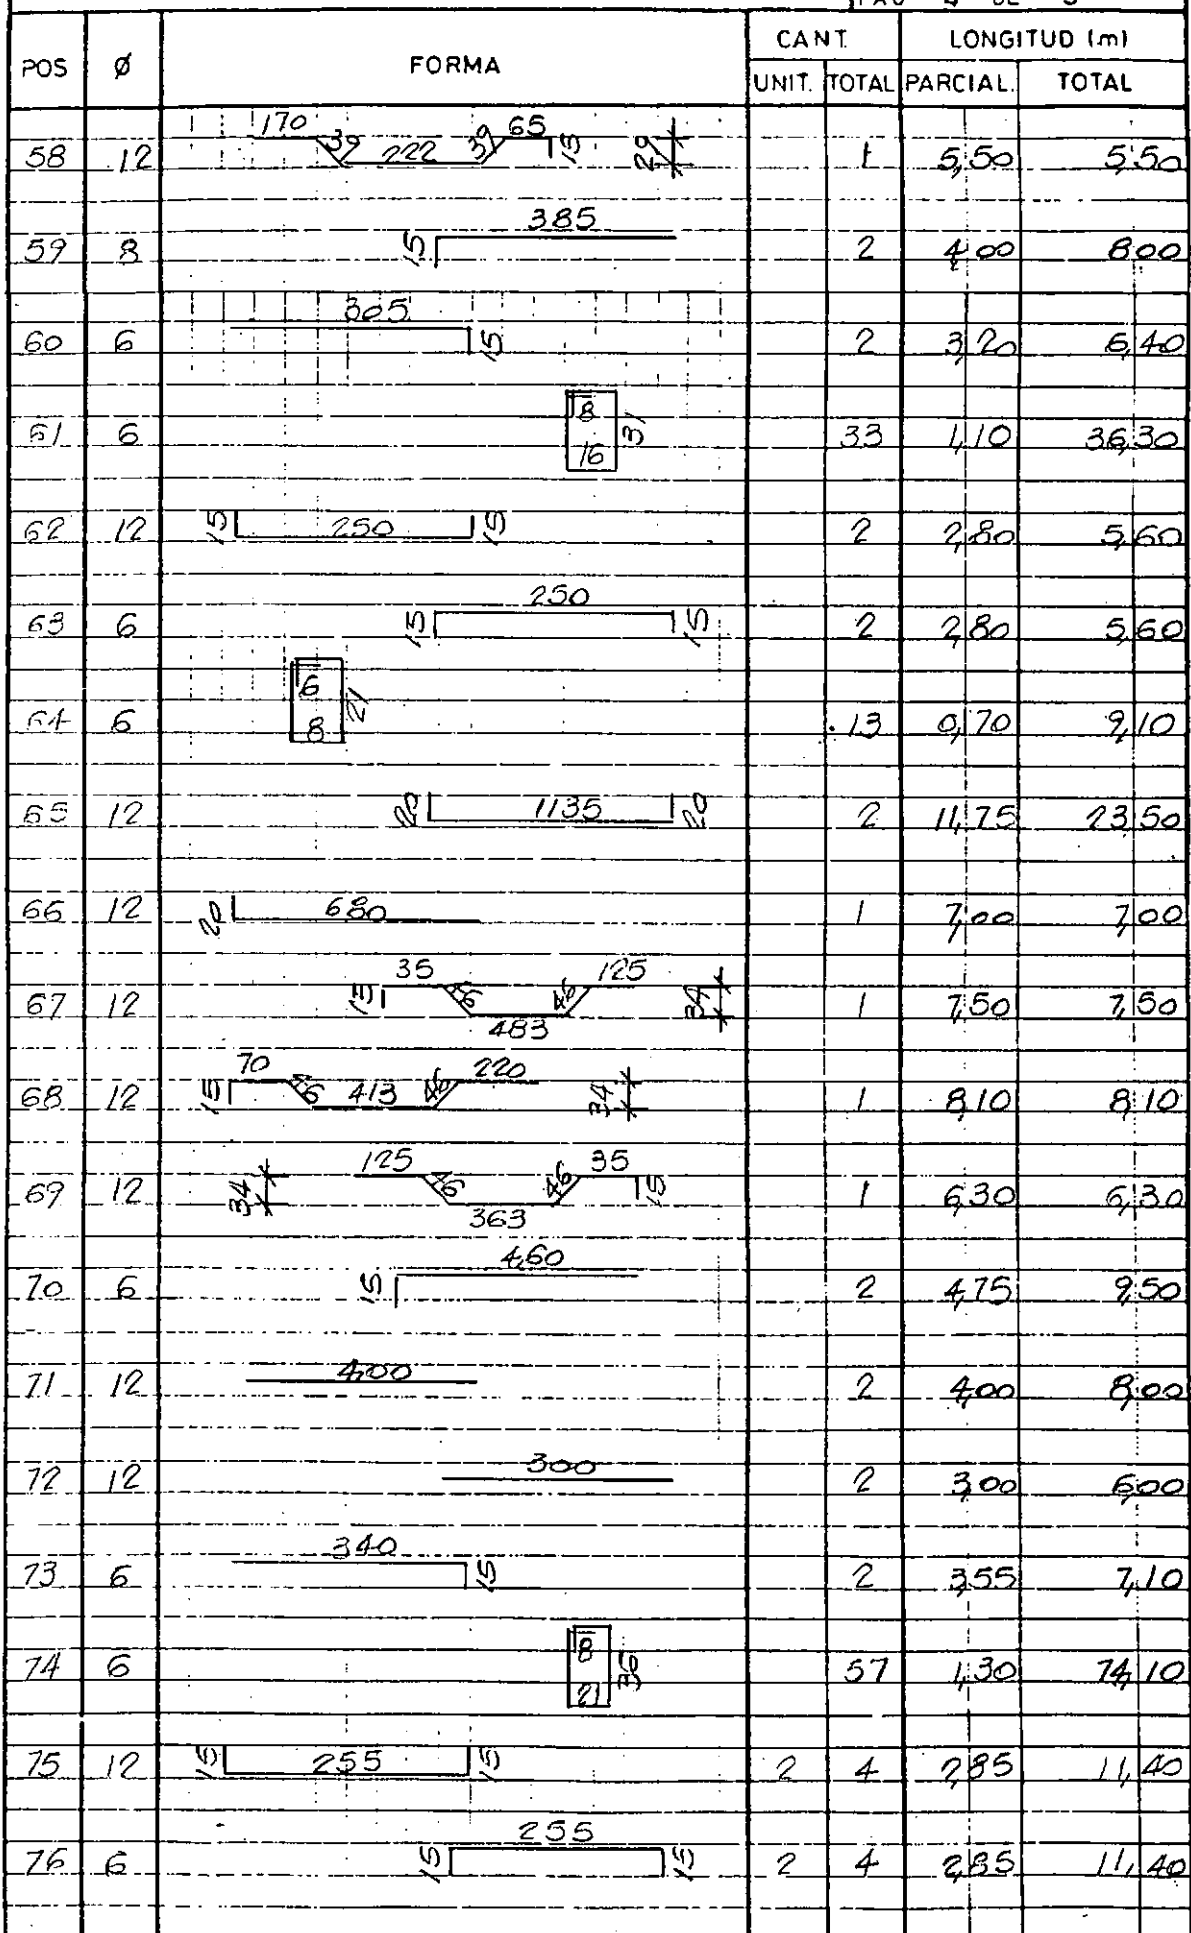 PAG 4 DE
POS Ø FORMA CANT. LONGITUD (m)
UNIT. TOTAL PARCIAL. TOTAL
58 12 170 39 222 39 65 15 29 1 5,50 5,50
59 8 15 385 2 4,00 8,00
60 6 305 15 2 3,20 6,40
61 6 8 16 31 33 1,10 36,30
62 12 15 250 15 2 2,80 5,60
63 6 15 250 15 2 2,80 5,60
64 6 6 8 21 13 0,70 9,10
65 12 20 1135 20 2 11,75 23,50
66 12 20 680 1 7,00 7,00
67 12 15 35 46 483 46 125 34 1 7,50 7,50
68 12 15 70 46 413 46 220 34 1 8,10 8,10
69 12 34 125 46 363 46 35 15 1 6,30 6,30
70 6 15 4,60 2 4,75 9,50
71 12 4,00 2 4,00 8,00
72 12 300 2 3,00 6,00
73 6 340 15 2 3,55 7,10
74 6 8 21 36 57 1,30 74,10
75 12 15 255 15 2 4 2,85 11,40
76 6 15 255 15 2 4 2,85 11,40